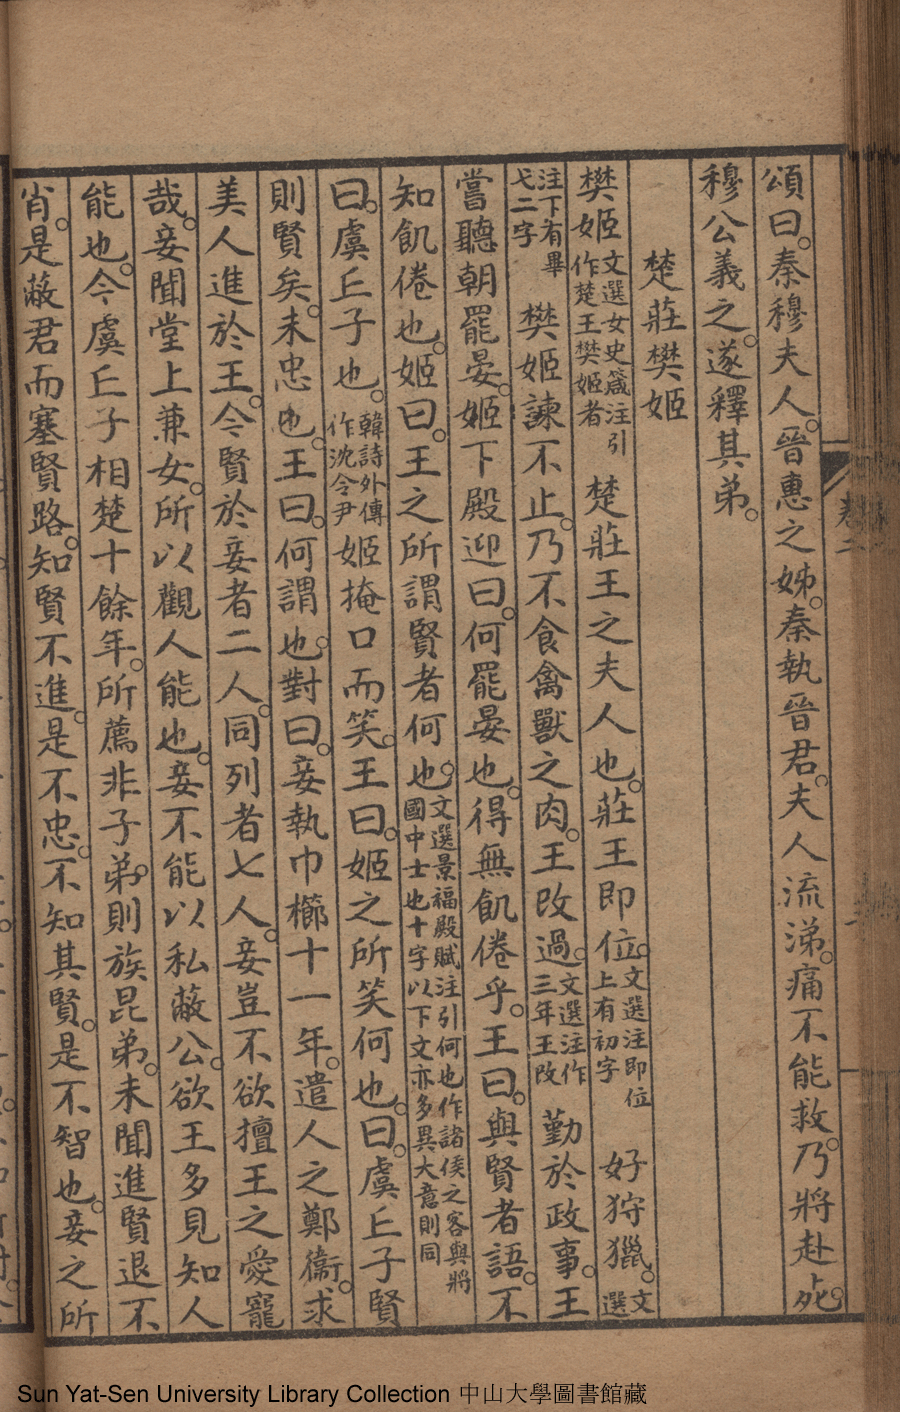 頌曰。秦穆夫人。晉惠之姊。秦執晉君。夫人流涕。痛不能救。乃將赴死。
穆公義之。遂釋其弟。
楚莊樊姬
樊姬文選女史箴注引作楚王樊姬者楚莊王之夫人也。莊王即位。文選注即位上有初字好狩獵。文選
注下有畢弋二字樊姬諫不止。乃不食禽獸之肉。王改過。文選注作三年王改勤於政事。王
嘗聽朝罷晏。姬下殿迎曰。何罷晏也。得無飢倦乎。王曰。與賢者語。不
知飢倦也。姬曰。王之所謂賢者何也。文選景福殿賦注引何也作諸侯之客與將國中士也十字以下文亦多異大意則同
曰。虞丘子也。韓詩外傳作沈令尹姬掩口而笑。王曰。姬之所笑何也。曰。虞丘子賢
則賢矣。未忠也。王曰。何謂也。對曰。妾執巾櫛十一年。遣人之鄭衞。求
美人進於王。今賢於妾者二人。同列者七人。妾豈不欲擅王之愛寵
哉。妾聞堂上兼女。所以觀人能也。妾不能以私蔽公。欲王多見知人
能也。今虞丘子相楚十餘年。所薦非子弟。則族昆弟。未聞進賢退不
肖。是蔽君而塞賢路。知賢不進。是不忠。不知其賢。是不智也。妾之所
卷二
Sun Yat-Sen University Library Collection 中山大學圖書館藏